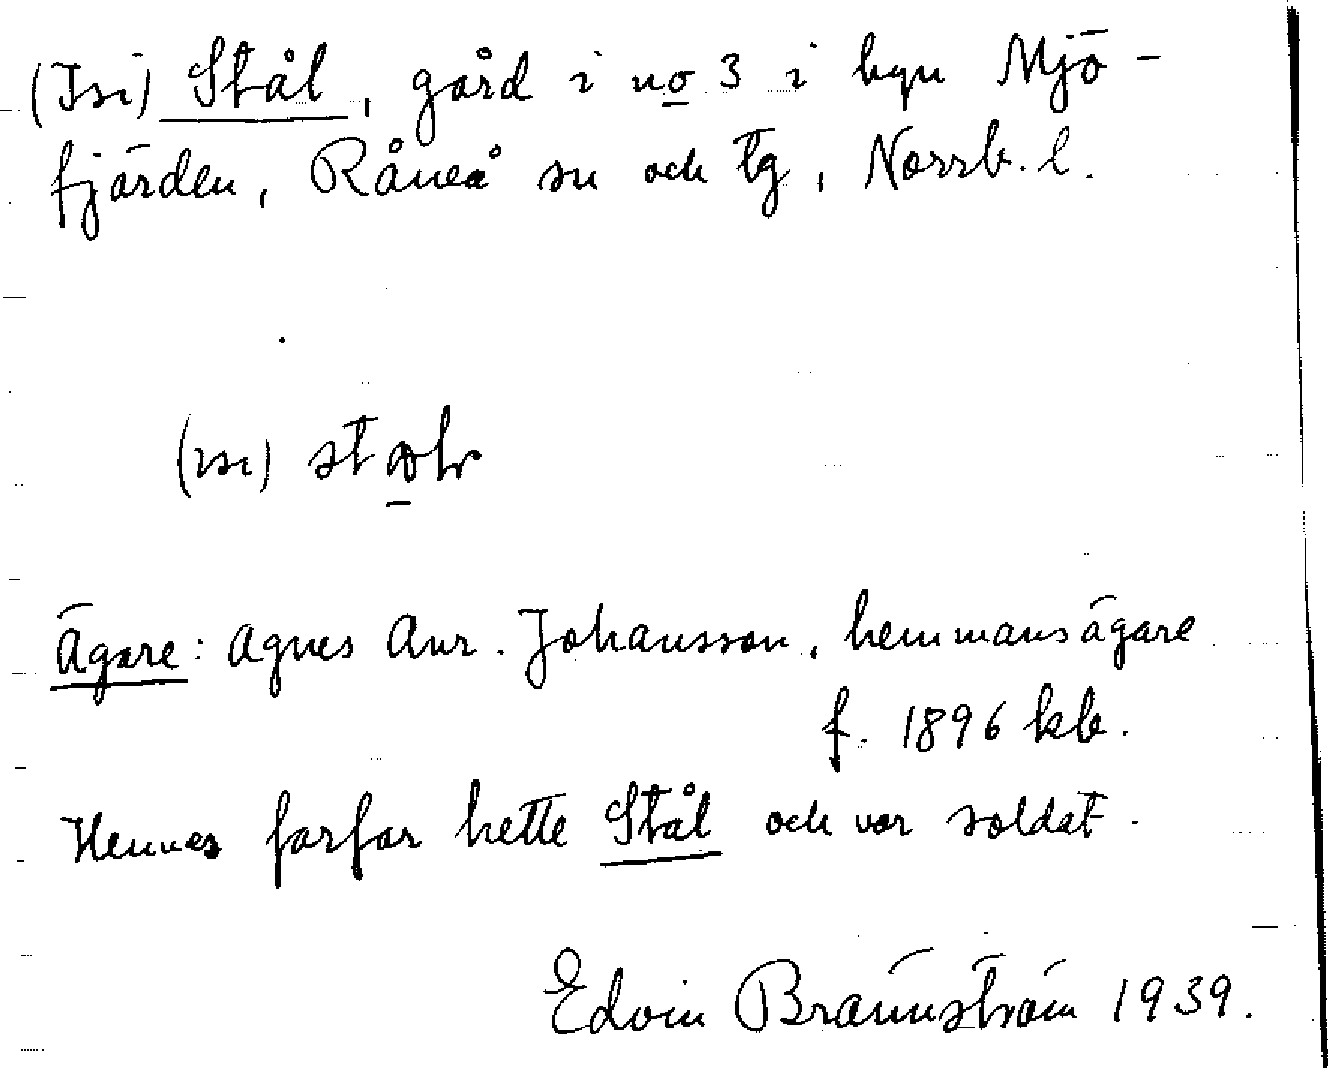 (Isi) Stål, gård i no 3 i byn Mjö-
fjärden, Råneå sn och tg, Norrb. l.
Ägare: Agnes Aur. Johansson, hemmansägare
f. 1896 kb.
Hennes farfar hette Stål och var soldat.
Edvin Brännström 1939.